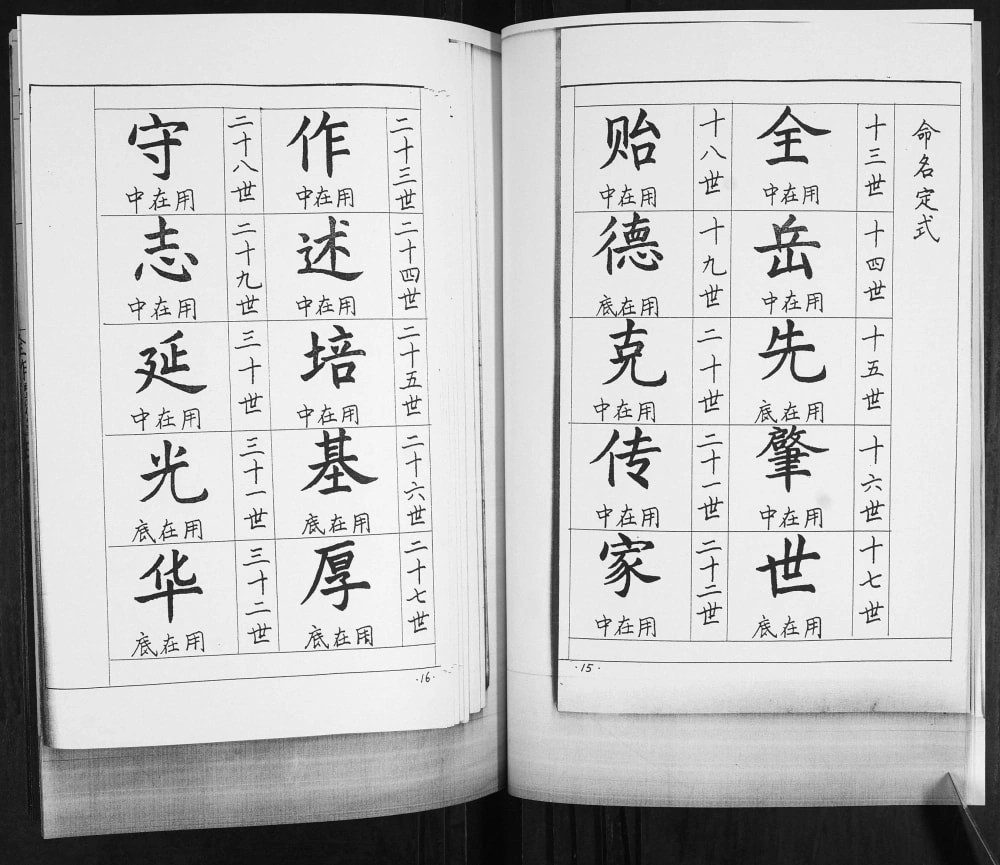 命名定式
十三世
全
用在中
十四世
岳
用在中
十五世
先
用在底
十六世
肇
用在中
十七世
世
用在底
十八世
贻
用在中
十九世
德
用在底
二十世
克
用在中
二十一世
传
用在中
二十二世
家
用在中
·15·
二十三世
作
用在中
二十四世
述
用在中
二十五世
培
用在中
二十六世
基
用在底
二十七世
厚
用在底
二十八世
守
用在中
二十九世
志
用在中
三十世
延
用在中
三十一世
光
用在底
三十二世
华
用在底
·16·